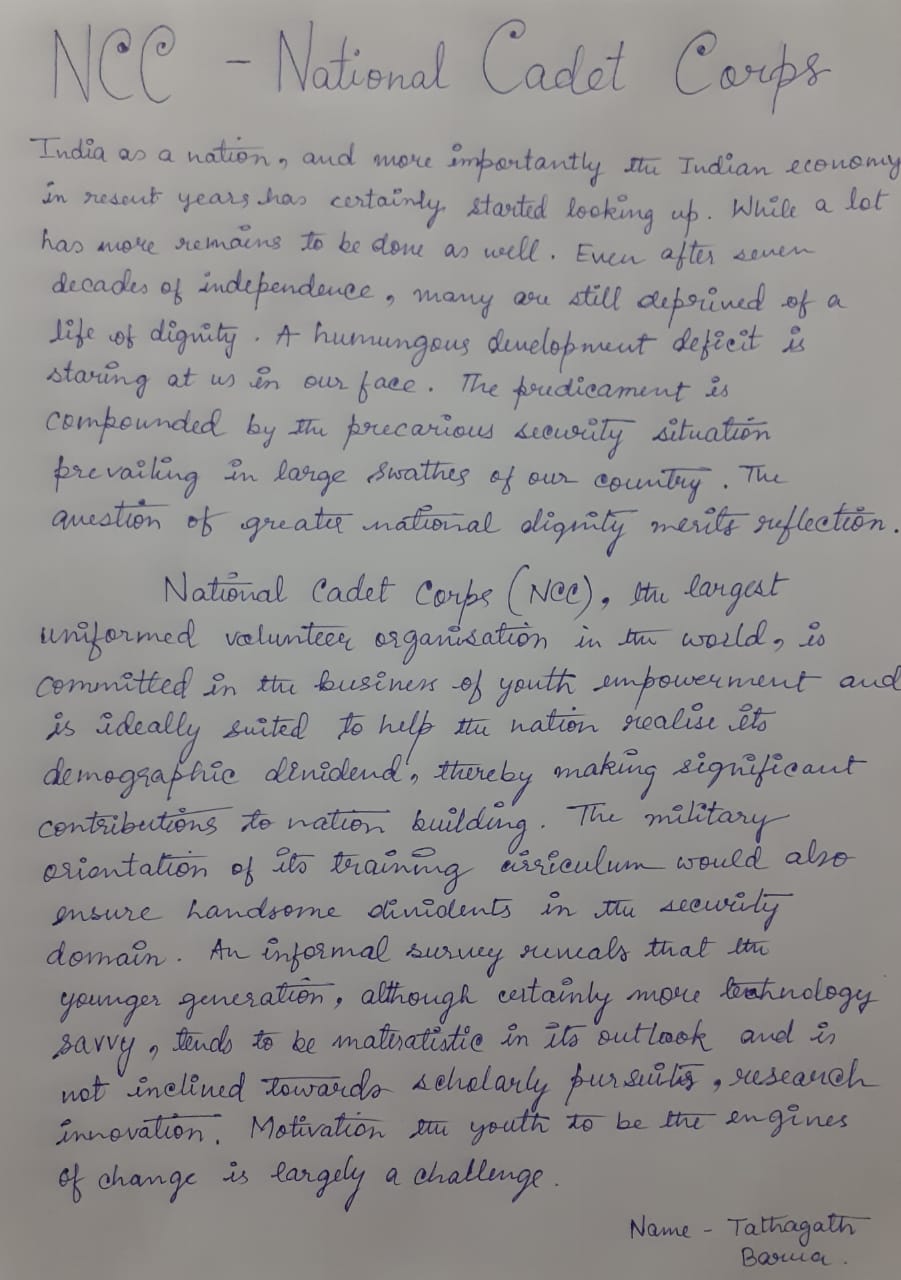 NCC - National Cadet Corps
India as a nation, and more importantly the Indian economy
in resent years has certainly started looking up. While a lot
has more remains to be done as well. Even after seven
decades of independence, many are still deprived of a
life of dignity. A humungous development deficit is
staring at us in our face. The predicament is
compounded by the precarious security situation
prevailing in large swathes of our country. The
question of greater national dignity merits reflection.
National Cadet Corps (NCC), the largest
uniformed volunteer organisation in the world, is
committed in the business of youth empowerment and
is ideally suited to help the nation realise its
demographic dividend', thereby making significant
contributions to nation building. The military
orientation of its training cirriculum would also
ensure handsome dividents in the security
domain. An informal survey reveals that the
younger generation, although certainly more technology
savvy, tends to be matiratistic in its outlook and is
not inclined towards scholarly pursuits, research
innovation. Motivation the youth to be the engines
of change is largely a challenge.
Name - Tathagath
Barua.